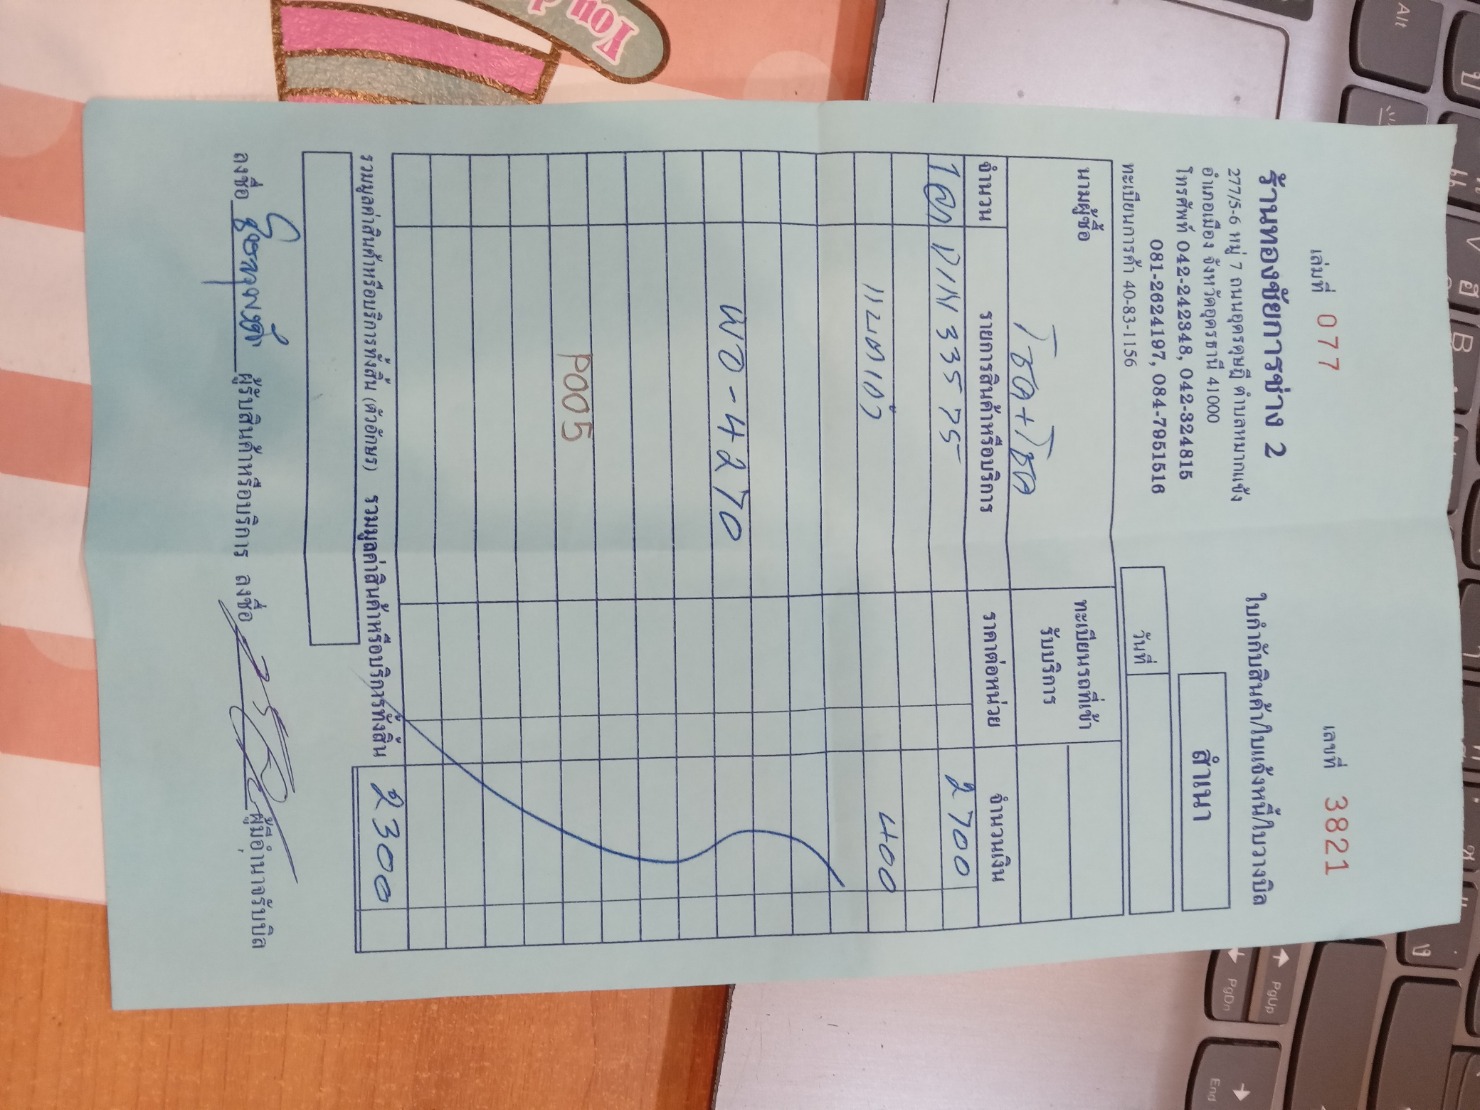 เล่มที่ 077
เลขที่ 3821
ร้านทองชัยการช่าง 2
277/5-6 หมู่ 7 ถนนอุดรดุษฎี ตำบลหมากแข้ง
อำเภอเมือง จังหวัดอุดรธานี 41000
โทรศัพท์ 042-242348, 042-324815
081-2624197, 084-7951516
ทะเบียนการค้า 40-83-1156
ใบกำกับสินค้า/ใบแจ้งหนี้/ใบวางบิล
สำเนา
วันที่
นามผู้ซื้อ
ทะเบียนรถที่เข้า
รับบริการ
จำนวน รายการสินค้าหรือบริการ ราคาต่อหน่วย จำนวนเงิน
1 ลูก DIN 335 75 2700
แบตเก่า 400
ผอ-4270
P005
รวมมูลค่าสินค้าหรือบริการทั้งสิ้น (ตัวอักษร) รวมมูลค่าสินค้าหรือบริการทั้งสิ้น 2300
ลงชื่อ ผู้รับสินค้าหรือบริการ ลงชื่อ ผู้มีอำนาจรับบิล
You
Alt
B
PgUp
PgDn
End